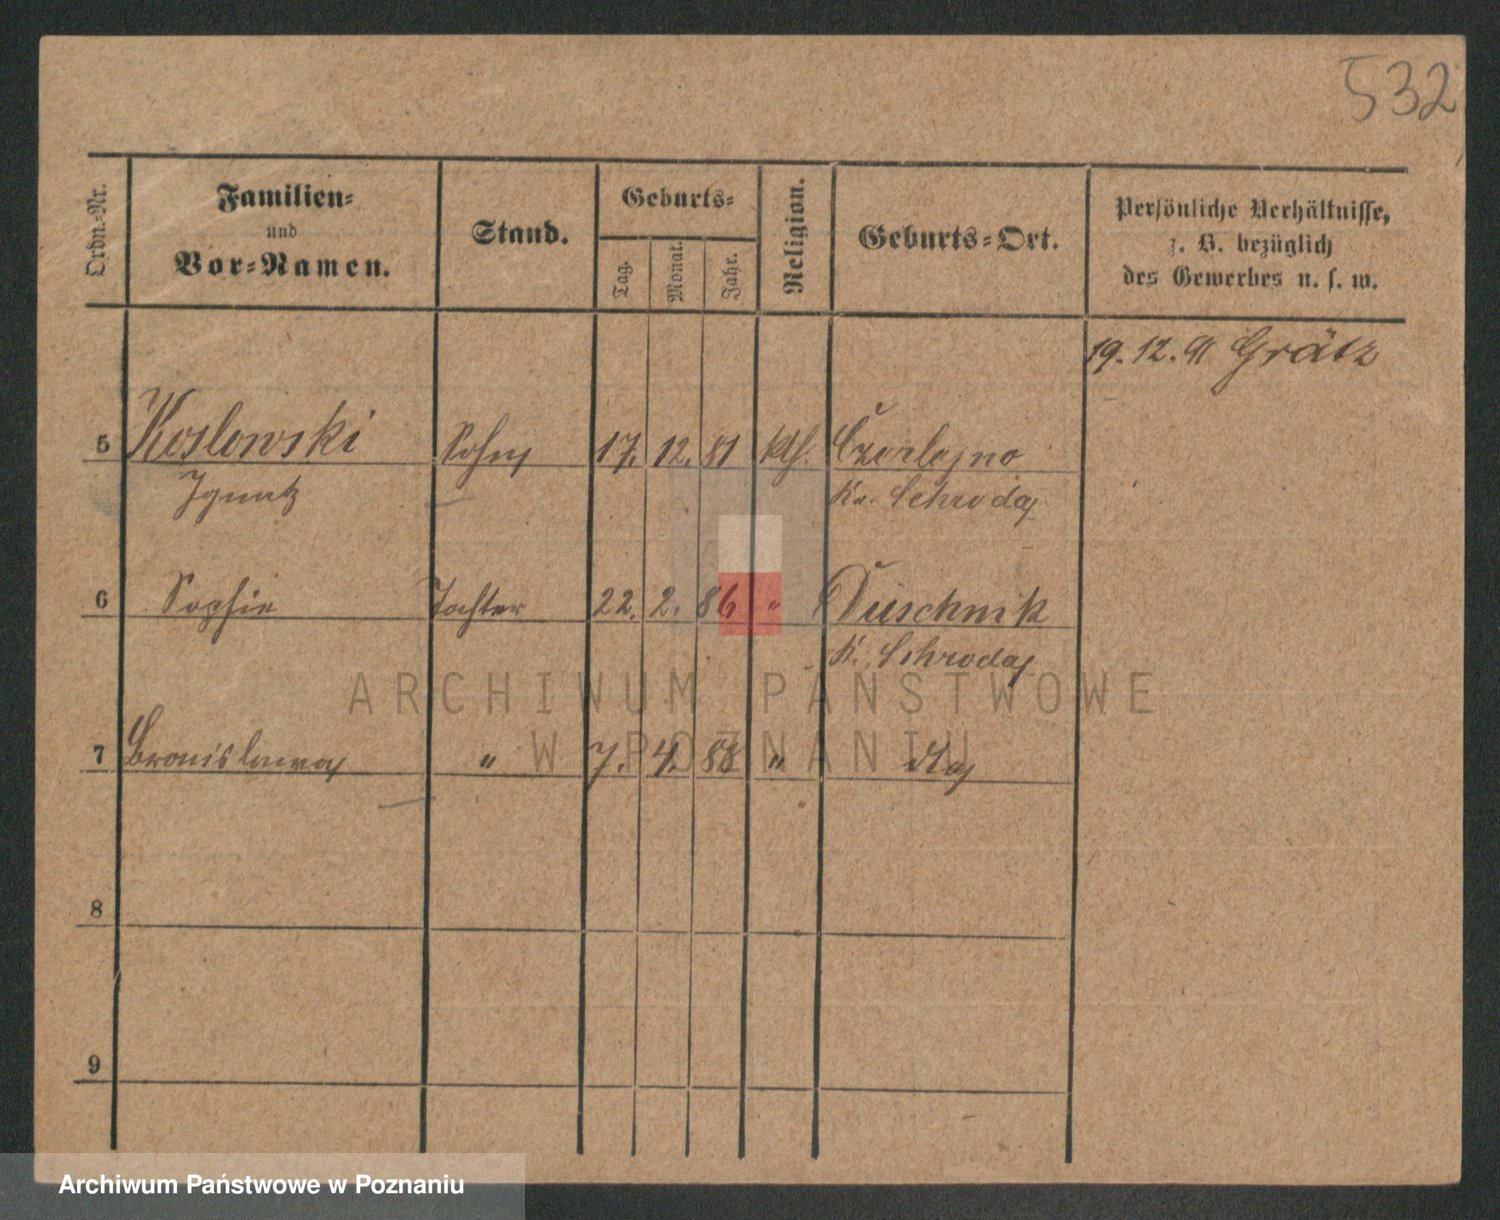 532
Ordn.-Nr.
Familien-
und
Vor-Namen.
Stand.
Geburts-
Tag.
Monat.
Jahr.
Religion.
Geburts-Ort.
Persönliche Verhältnisse,
z. B. bezüglich
des Gewerbes u. s. w.
19. 12. 91 Grätz
5 Koslowski Sohn 17. 12. 81 kth.
Ignatz Kr. Schroda
6 Sophie Tochter 22. 2. 86 " Duschnik
K. Schroda
7 Bronislawa " 7. 4. 88 "
8
9
ARCHIWUM PAŃSTWOWE
W POZNANIU
Archiwum Państwowe w Poznaniu